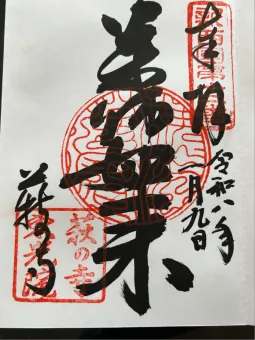 奉拝
令和八年
一月九日
薬師如来
萩の寺
萩の寺
東光院